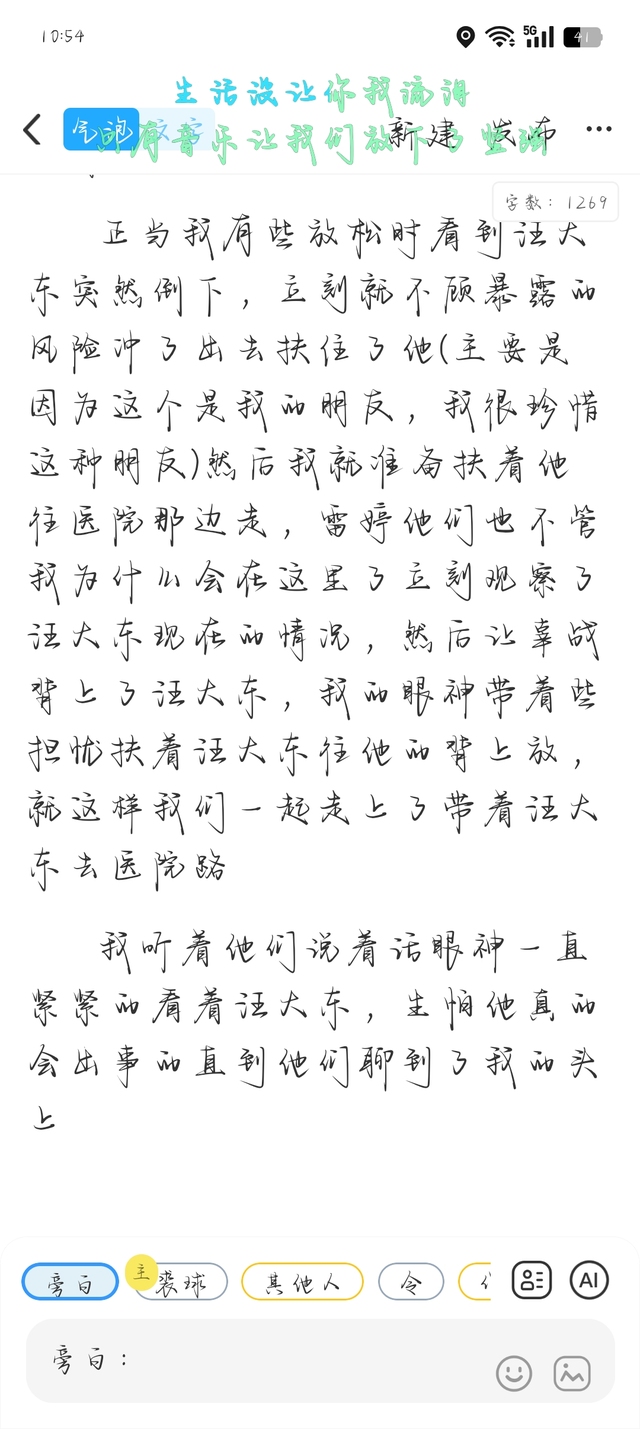 10:54
5G
41
生活没让你我流泪
只有音乐让我们放下了坚强
气泡 文字 新建 发布 ...
字数: 1269
正当我有些放松时看到汪大
东突然倒下，立刻就不顾暴露的
风险冲了出去扶住了他(主要是
因为这个是我的朋友，我很珍惜
这种朋友)然后我就准备扶着他
往医院那边走，雷婷他们也不管
我为什么会在这里了立刻观察了
汪大东现在的情况，然后让辜战
背上了汪大东，我的眼神带着些
担忧扶着汪大东往他的背上放，
就这样我们一起走上了带着汪大
东去医院路
我听着他们说着话眼神一直
紧紧的看着汪大东，生怕他真的
会出事的直到他们聊到了我的头
上
旁白 主 裘球 其他人 令 AI
旁白：